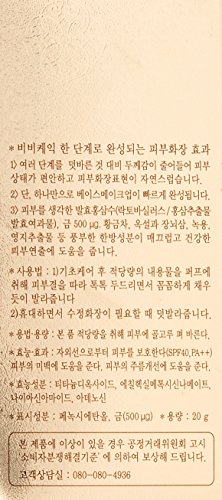 * 비비케익 한 단계로 완성되는 피부화장 효과
1) 여러 단계를 덧바른 것 대비 두께감이 줄어들어 피부
상태가 편안하고 피부화장표현이 자연스럽습니다.
2) 단, 하나만으로 베이스메이크업이 빠르게 완성됩니다.
3) 피부를 생각한 발효홍삼수(락토바실러스/홍삼추출물
발효여과물), 금 500㎍, 황금차, 옥설과 장뇌삼, 녹용,
영지추출물 등 풍부한 한방성분이 매끄럽고 건강한
피부연출에 도움을 줍니다.
* 사용법 : 1)기초케어 후 적당량의 내용물을 퍼프에
취해 피부결을 따라 톡톡 두드리면서 꼼꼼하게 채우
듯이 발라줍니다
2)휴대하면서 수정화장이 필요할 때 덧발라줍니다.
*용법·용량 : 본 품 적당량을 취해 피부에 골고루 펴 바른다.
*효능·효과 : 자외선으로부터 피부를 보호한다(SPF40,PA++)
피부의 미백에 도움을 준다. 피부의 주름개선에 도움을 준다.
*효능성분 : 티타늄디옥사이드, 에칠헥실메톡시신나메이트,
나이아신아마이드, 아데노신
*표시성분 : 페녹시에탄올, 금(500㎍) *용량 : 20g
본 제품에 이상이 있을 경우 공정거래위원회 고시
'소비자분쟁해결기준' 에 의하여 보상해 드립니다.
고객상담실 : 080-080-4936